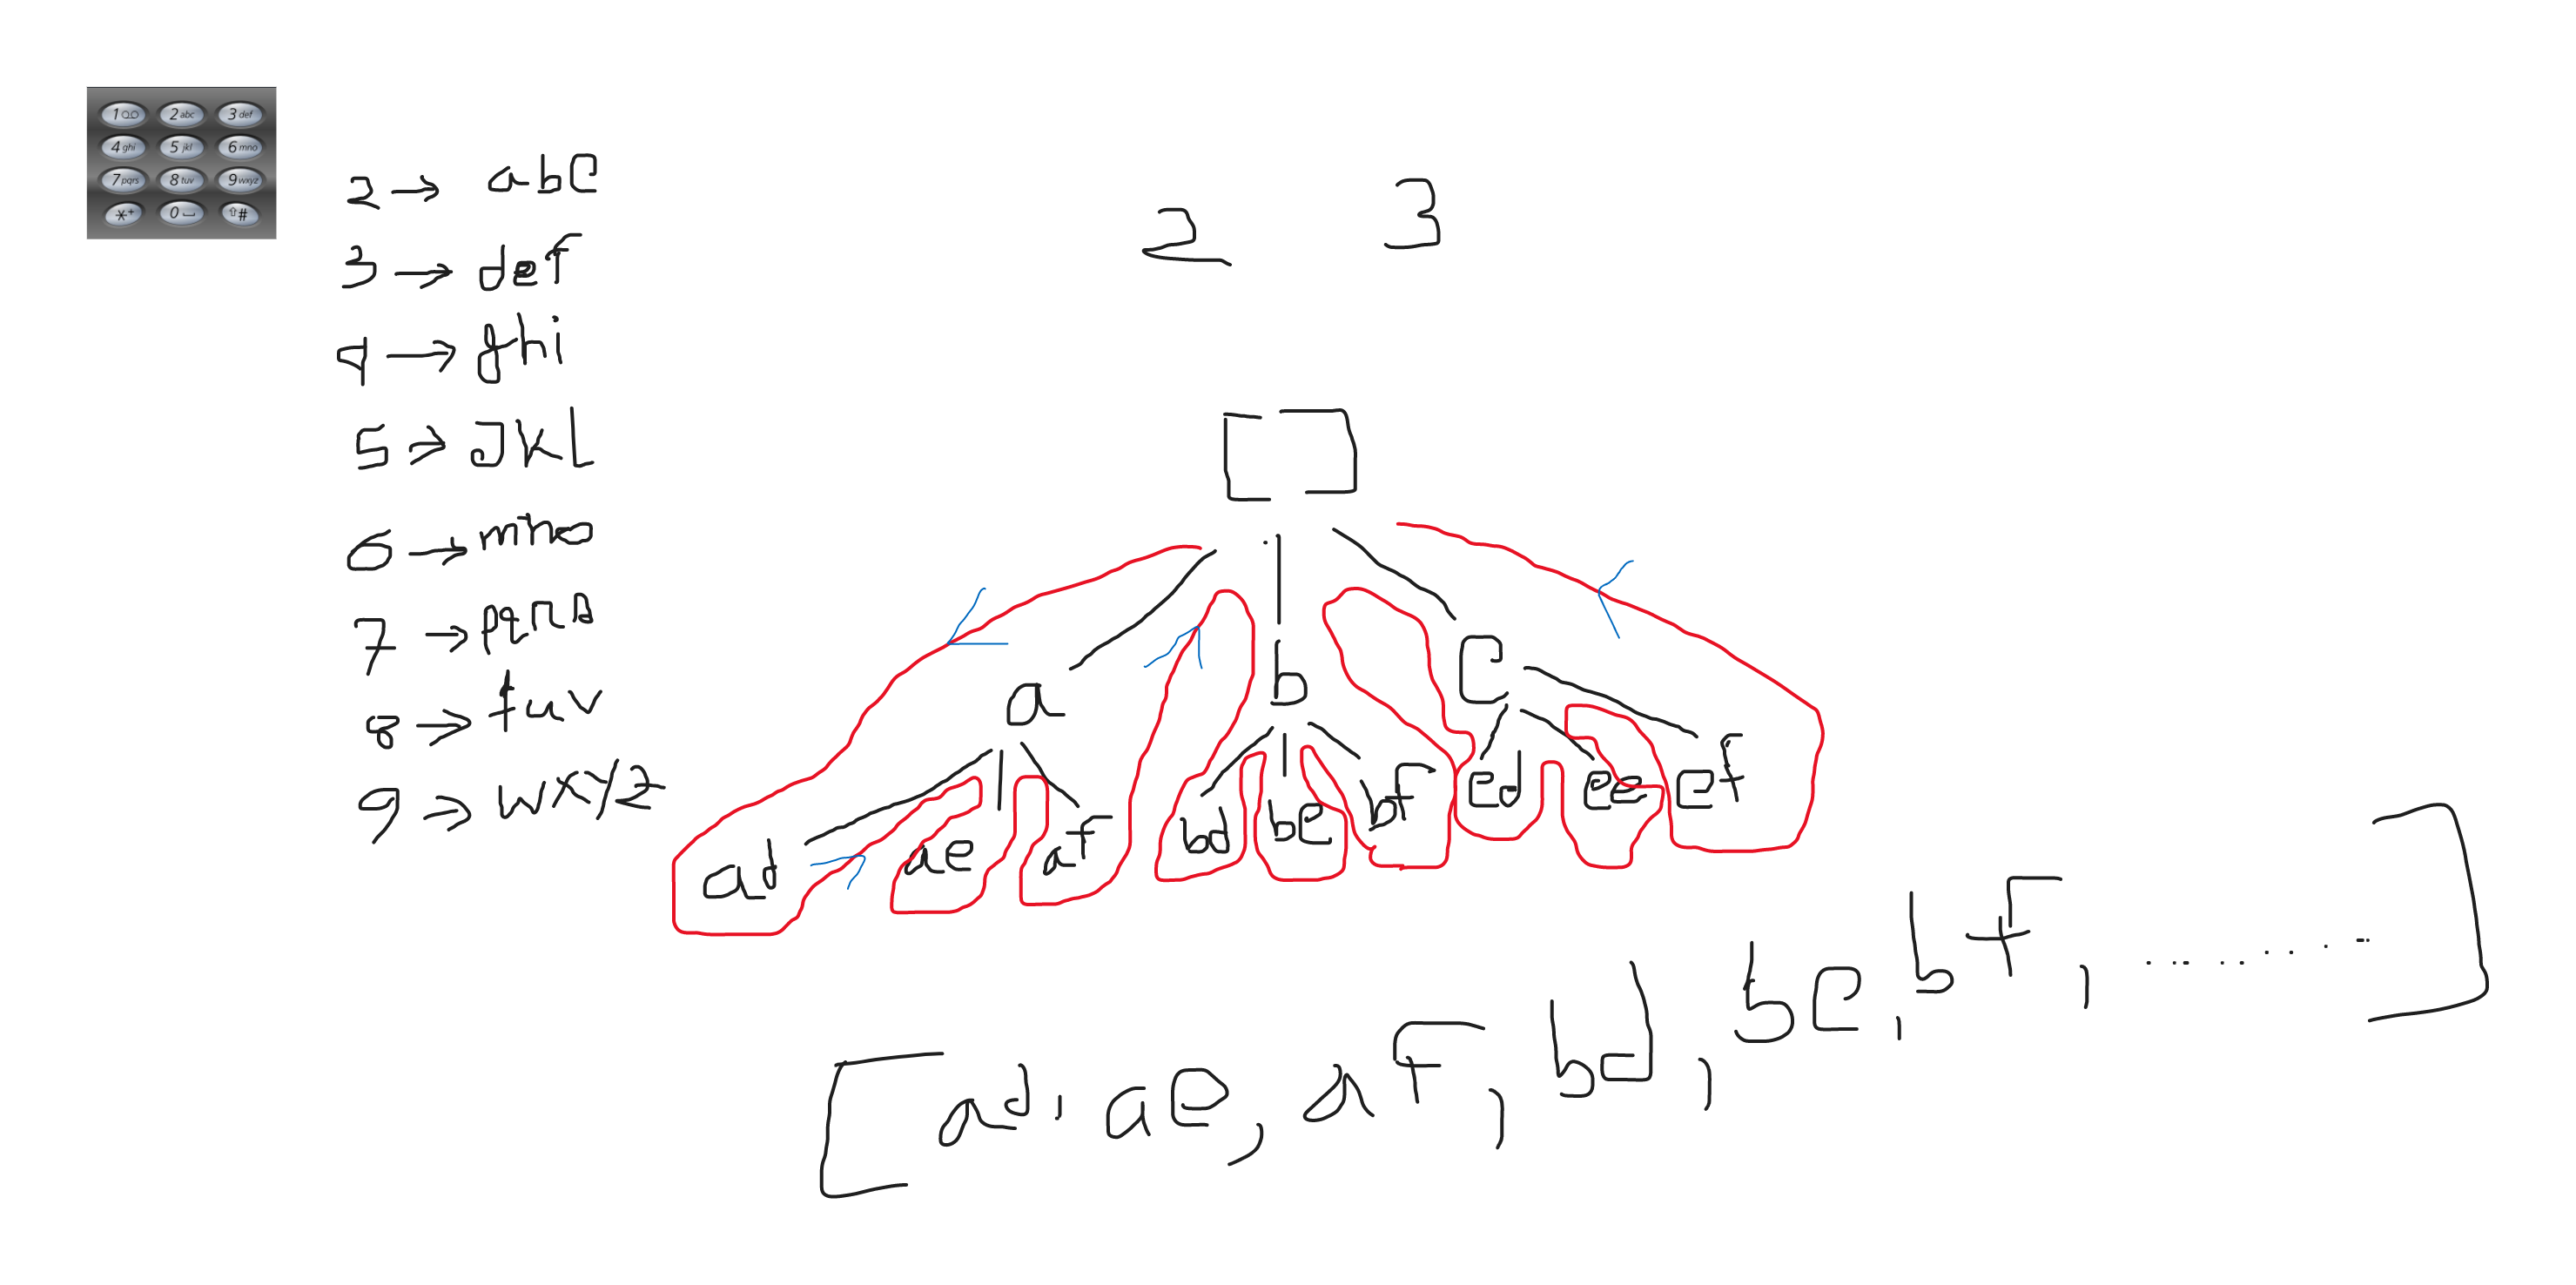 1
2 abc
3 def
4 ghi
5 jkl
6 mno
7 pqrs
8 tuv
9 wxyz
*+
0
#
2 → abc
3 → def
4 → ghi
5 → JKL
6 → mno
7 → pqrs
8 → tuv
9 → wxyz
2 3
[ ]
a b c
ad ae af bd be bf cd ce cf
[ad, ae, af, bd, be, bf, ..........]